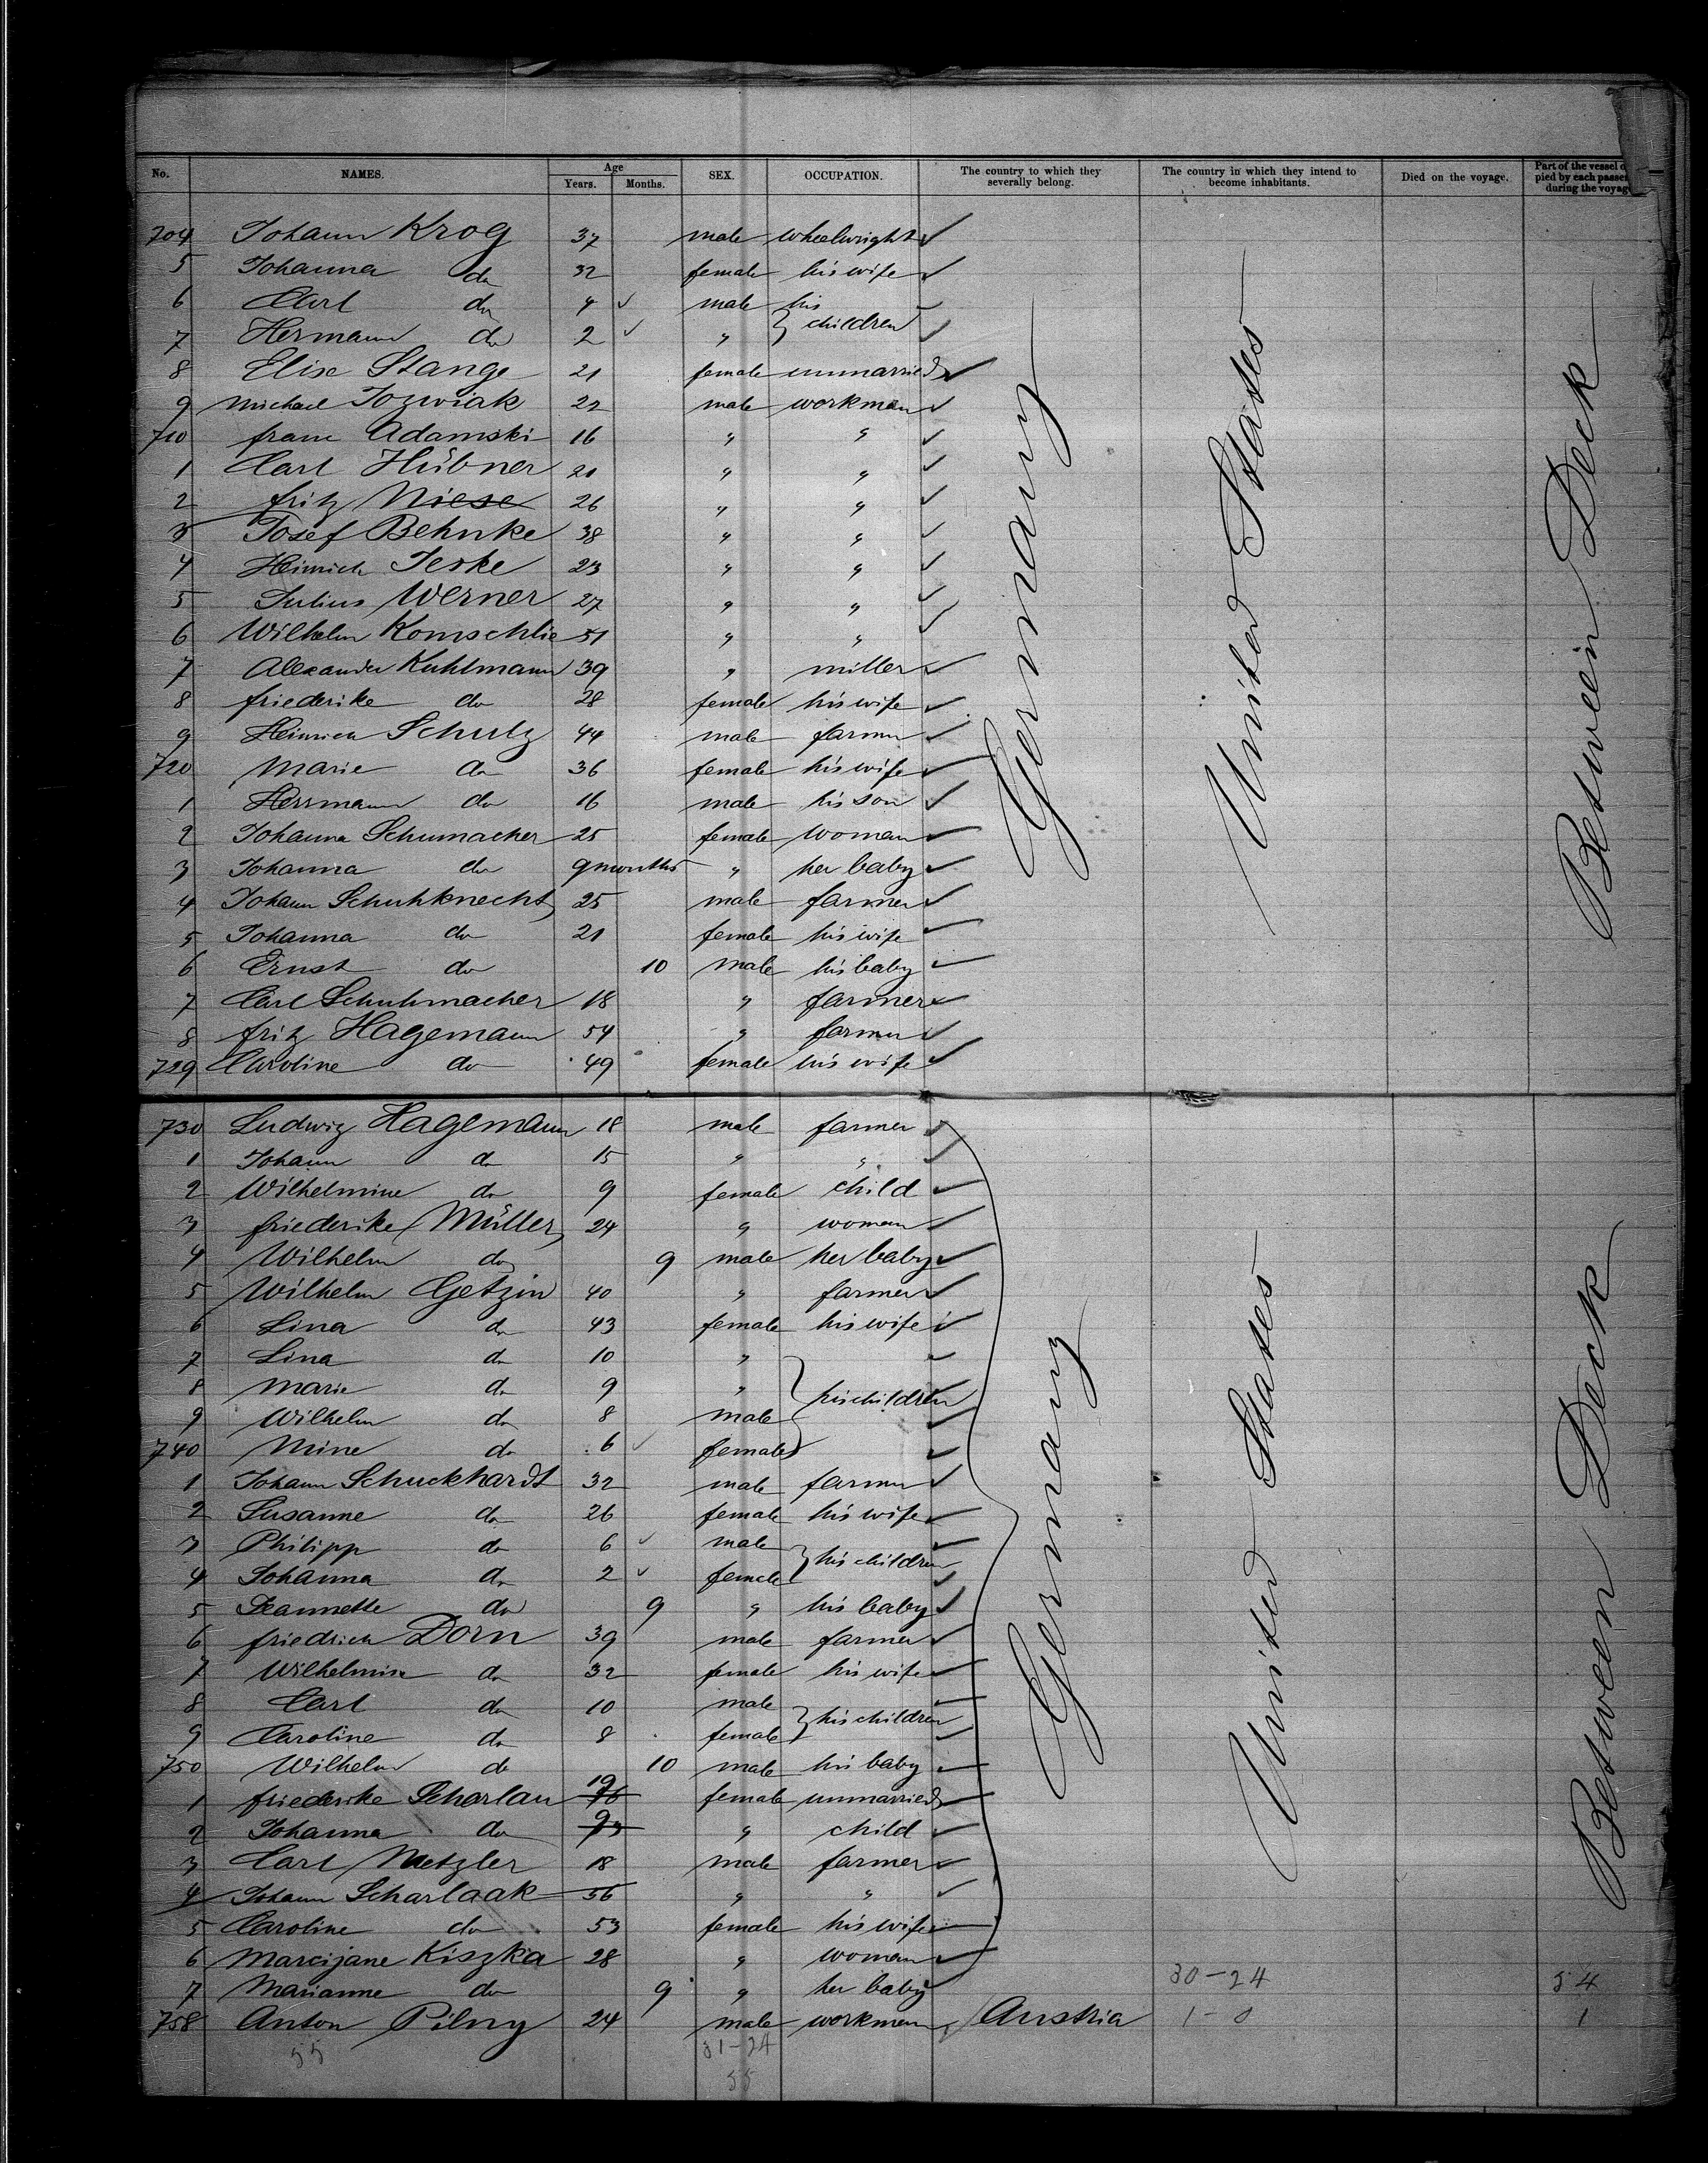 No. NAMES. Age Years. Months. SEX. OCCUPATION. The country to which they severally belong. The country in which they intend to become inhabitants. Died on the voyage. Part of the vessel pied by each during the
704 Johann Krog 37 male wheelwright
5 Johanna do 32 female his wife
6 Carl do 4 male his
7 Hermann do 2 " } children
8 Elise Stange 21 female unmarried
9 Michael Jozwiak 22 male workman
710 franz Adamski 16 " "
1 Carl Hübner 20 " "
2 fritz Niese 26 " "
3 Josef Behnke 38 " "
4 Heinrich Jeske 23 " "
5 Julius Werner 27 " "
6 Wilhelm Komschlie 51 " "
7 Alexander Kuhlmann 39 " miller
8 friederike do 28 female his wife
9 Heinrich Schulz 44 male farmer
720 Marie do 36 female his wife
1 Herrmann do 16 male his son
2 Johanna Schumacher 25 female woman
3 Johanna do 9 months " her baby
4 Johann Schuhknecht 25 male farmer
5 Johanna do 21 female his wife
6 Ernst do 10 male his baby
7 Carl Schuhmacher 18 " farmer
8 fritz Hagemann 54 " farmer
729 Caroline do 49 female his wife
Germany United States Between Deck
730 Ludwig Hagemann 18 male farmer
1 Johann do 15 " "
2 Wilhelmine do 9 female child
3 friederike Müller 24 " woman
4 Wilhelm do 9 male her baby
5 Wilhelm Getzin 40 " farmer
6 Lina do 43 female his wife
7 Lina do 10 "
8 Marie do 9 " his children
9 Wilhelm do 8 male
740 Mine do 6 female
1 Johann Schuckhardt 32 male farmer
2 Susanne do 26 female his wife
3 Philipp do 6 male
4 Johanna do 2 female } his children
5 Jeannette do 9 " his baby
6 friedrich Dorn 39 male farmer
7 Wilhelmine do 32 female his wife
8 Carl do 10 male
9 Caroline do 8 female } his children
750 Wilhelm do 10 male his baby
1 friederike Scharlau 19 female unmarried
2 Johanna do 9 " child
3 Carl Metzler 18 male farmer
4 Johann Scharlaak 56 " "
5 Caroline do 53 female his wife
6 Marcijane Kiszka 28 " woman
7 Marianne do 9 " her baby 30-24 54
758 Anton Pilny 24 male workman Austria 1-0 1
Germany United States Between Deck
55 31-24
55